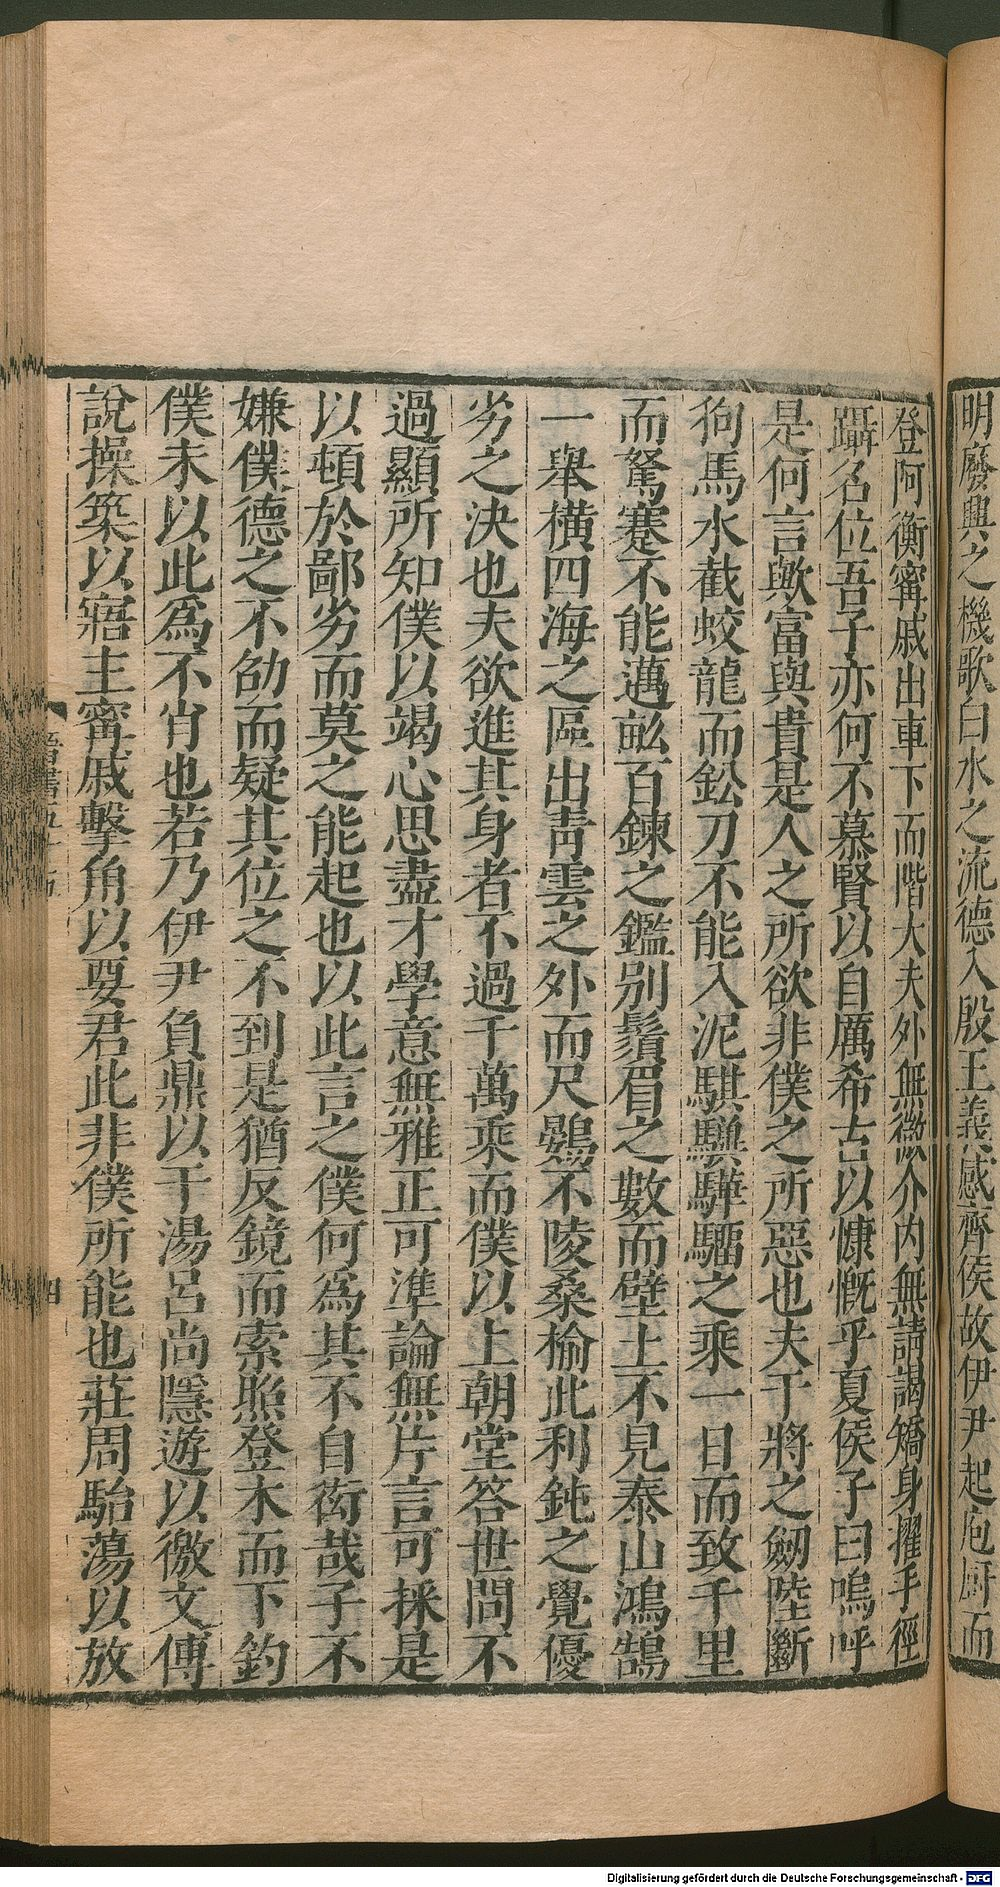 明廢興之機歌白水之流德入殷王義感齊侯故伊尹起庖厨而
登阿衡甯戚出車下而階大夫外無微介内無請謁矯身擢手徑
躡名位吾子亦何不慕賢以自厲希古以慷慨乎夏侯子曰嗚呼
是何言歟富與貴是人之所欲非僕之所惡也夫干將之劒陸斷
狗馬水截蛟龍而鈆刀不能入泥騏驥驊騮之乘一日而致千里
而駑蹇不能邁畝百鍊之鑑别鬚眉之數而壁土不見泰山鴻鵠
一舉橫四海之區出靑雲之外而尺鷃不陵桑榆此利鈍之覺優
劣之決也夫欲進其身者不過千萬乘而僕以上朝堂答世問不
過顯所知僕以竭心思盡才學意無雅正可準論無片言可採是
以頓於鄙劣而莫之能起也以此言之僕何為其不自衒哉子不
嫌僕德之不劭而疑其位之不到是猶反鏡而索照登木而下釣
僕未以此爲不肖也若乃伊尹負鼎以干湯呂尚隱遊以徼文傅
說操築以寤主甯戚擊角以要君此非僕所能也莊周駘蕩以放
四
Digitalisierung gefördert durch die Deutsche Forschungsgemeinschaft - DFG